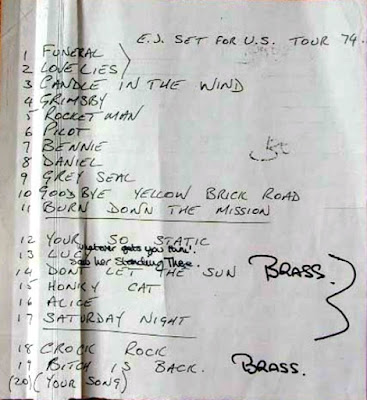 E.J. SET FOR U.S. TOUR 74.
1 FUNERAL
2 LOVE LIES
3 CANDLE IN THE WIND
4 GRIMSBY
5 ROCKET MAN
6 PILOT
7 BENNIE
8 DANIEL
9 GREY SEAL
10 GOODBYE YELLOW BRICK ROAD
11 BURN DOWN THE MISSION
12 YOUR SO STATIC
13 LUCY
Whatever gets you thru'.
Saw her Standing There..
14 DONT LET THE SUN BRASS.
15 HONKY CAT
16 ALICE
17 SATURDAY NIGHT
18 CROCK ROCK
19 BITCH IS BACK. BRASS.
(20) (YOUR SONG)